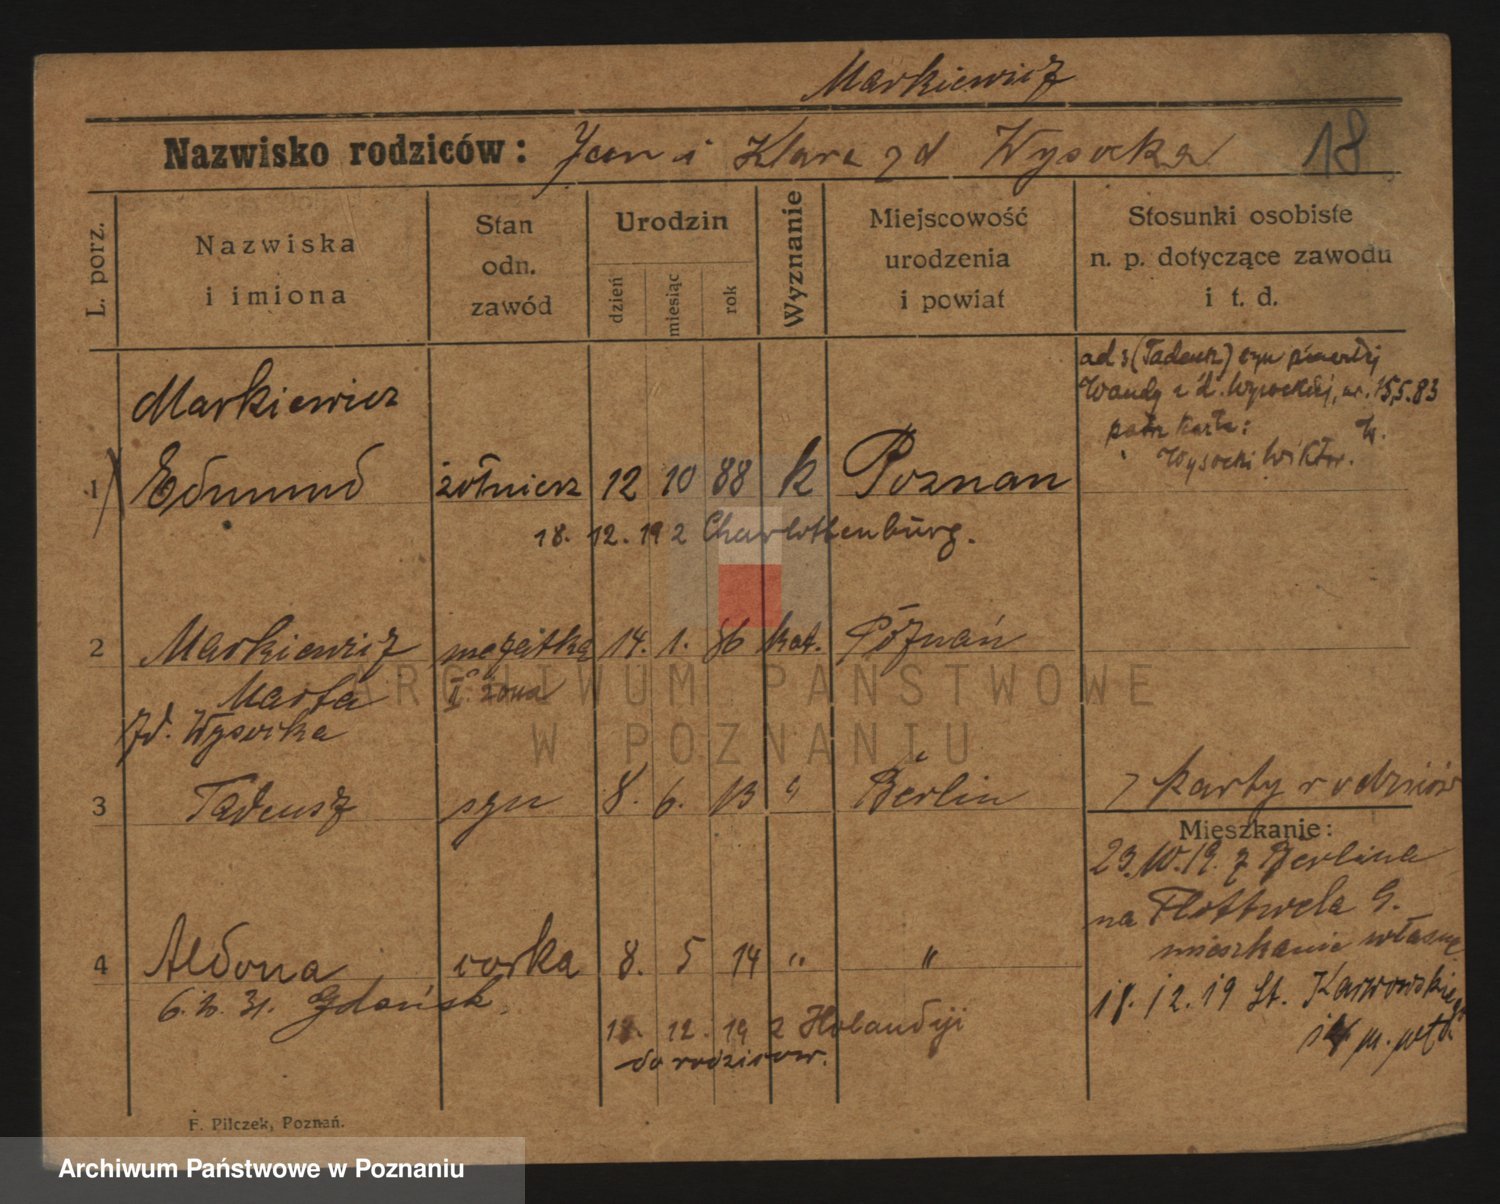 Markiewicz
Nazwisko rodziców: Jan i Klara zd Wysocka 18
L. porz.
Nazwiska i imiona
Stan odn. zawód
Urodzin
dzień miesiąc rok
Wyznanie
Miejscowość urodzenia i powiat
Stosunki osobiste n. p. dotyczące zawodu i t. d.
ad 3 (Tadeusz) syn zmarłej
Wandy z d. Wysockiej, ur. 15.5.83
patrz karta:
Wysocki Wiktor.
Markiewicz
1 Edmund żołnierz 12 10 88 k Poznan
18. 12. 19 z Charlottenburg.
2 Markiewicz mężatka 14. 1. 86 kat. Poznań
Marta II żona
zd. Wysocka
3 Tadeusz syn 8. 6. 13 " Berlin
z karty rodziców
Mieszkanie:
23.10.19. z Berlina
na Flottwela G.
mieszkanie własne
4 Aldona corka 8. 5 14 " "
6. 31. Gdańsk.
18. 12. 19 St. Karwowskiego
12. 19 z Holandyi
do rodzicow.
F. Pilczek, Poznań.
ARCHIWUM PAŃSTWOWE
W POZNANIU
Archiwum Państwowe w Poznaniu